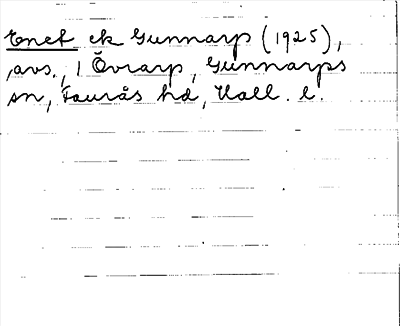 Enet ek Gunnarp (1925),
avs., 1 Övrarp, Gunnarps
sn, Faurås hd, Hall. l.